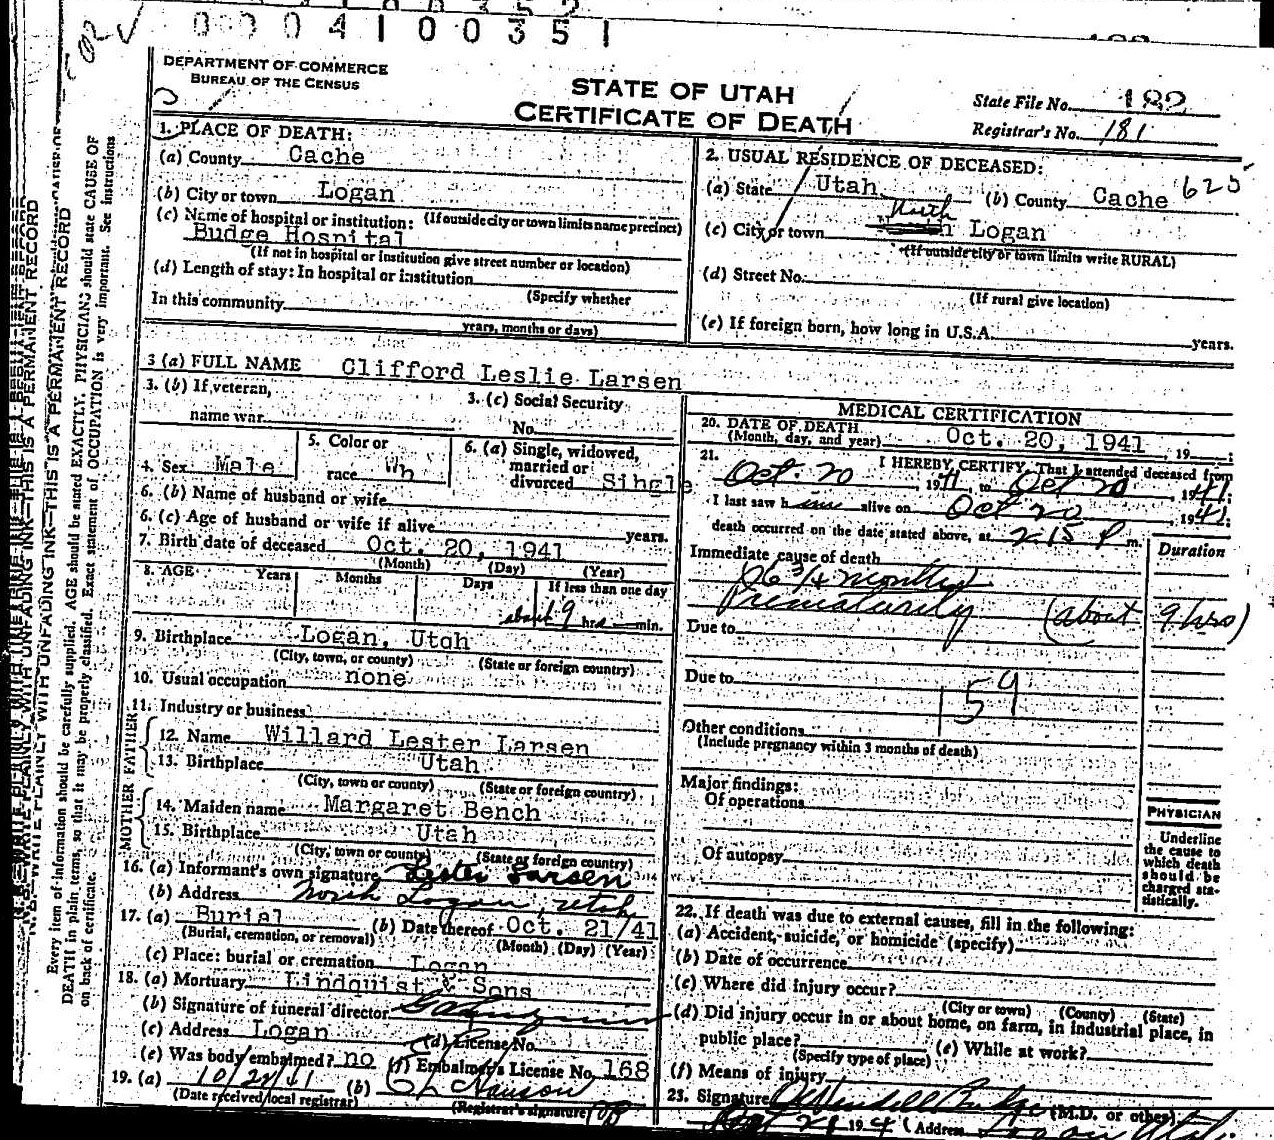 0 0 0 4 1 0 0 3 5 1
DEPARTMENT OF COMMERCE
BUREAU OF THE CENSUS
STATE OF UTAH
CERTIFICATE OF DEATH
State File No. 182
Registrar's No. 181
1. PLACE OF DEATH:
(a) County Cache
(b) City or town Logan
(c) Name of hospital or institution: (If outside city or town limits name precinct)
Budge Hospital
(If not in hospital or institution give street number or location)
(d) Length of stay: In hospital or institution
(Specify whether
In this community
years, months or days)
2. USUAL RESIDENCE OF DECEASED:
625
(a) State Utah (b) County Cache
North
(c) City or town Logan
(If outside city or town limits write RURAL)
(d) Street No.
(If rural give location)
(e) If foreign born, how long in U.S.A. years.
3 (a) FULL NAME Clifford Leslie Larsen
3. (b) If veteran,
name war
3. (c) Social Security
No.
4. Sex Male
5. Color or
race Wh
6. (a) Single, widowed,
married or
divorced Single
6. (b) Name of husband or wife
6. (c) Age of husband or wife if alive years.
7. Birth date of deceased Oct. 20, 1941
(Month) (Day) (Year)
8. AGE Years Months Days If less than one day
about 9 hrs min.
9. Birthplace Logan, Utah
(City, town, or county) (State or foreign country)
10. Usual occupation none
11. Industry or business
FATHER
12. Name Willard Lester Larsen
13. Birthplace Utah
(City, town or county) (State or foreign country)
MOTHER
14. Maiden name Margaret Bench
15. Birthplace Utah
(City, town or county) (State or foreign country)
16. (a) Informant's own signature Lester Larsen
(b) Address North Logan, Utah
17. (a) Burial (b) Date thereof Oct. 21/41
(Burial, cremation, or removal) (Month) (Day) (Year)
(c) Place: burial or cremation Logan
18. (a) Mortuary Lindquist & Sons
(b) Signature of funeral director
(c) Address Logan (d) License No.
(e) Was body embalmed? no (f) Embalmer's License No. 168
19. (a) (b)
(Date received local registrar) (Registrar's signature)
MEDICAL CERTIFICATION
20. DATE OF DEATH
(Month, day, and year) Oct. 20, 1941, 19
21. I HEREBY CERTIFY, That I attended deceased from
Oct. 20, 1941, to Oct 20, 1941;
I last saw him alive on Oct 20, 1941;
death occurred on the date stated above, at 2:15 P m.
Immediate cause of death
Duration
6 3/4 months
Prematurity (about 9 hrs)
Due to
Due to
159
Other conditions
(Include pregnancy within 3 months of death)
Major findings:
Of operations
Of autopsy
PHYSICIAN
Underline
the cause to
which death
should be
charged sta-
tistically.
22. If death was due to external causes, fill in the following:
(a) Accident, suicide, or homicide (specify)
(b) Date of occurrence
(c) Where did injury occur?
(City or town) (County) (State)
(d) Did injury occur in or about home, on farm, in industrial place, in
public place? (e) While at work?
(Specify type of place)
(f) Means of injury
23. Signature (M.D. or other)
19 Address Logan Utah
N. B. WRITE PLAINLY WITH UNFADING INK—THIS IS A PERMANENT RECORD
Every item of information should be carefully supplied. AGE should be stated EXACTLY. PHYSICIANS should state CAUSE OF
DEATH in plain terms, so that it may be properly classified. Exact statement of OCCUPATION is very important. See instructions
on back of certificate.